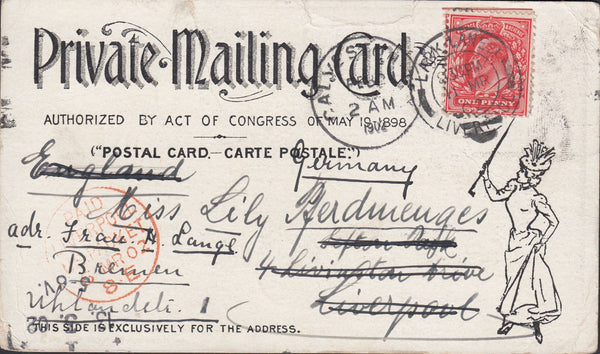 Private Mailing Card
AUTHORIZED BY ACT OF CONGRESS OF MAY 19, 1898
("POSTAL CARD.—CARTE POSTALE.")
England
Germany
Miss Lily
adr. Frau H. Lange
Bremen
Uhlandstr. 1
4 Livington Drive
Liverpool
THIS SIDE IS EXCLUSIVELY FOR THE ADDRESS.
ONE PENNY
2 AM
1902
LARK LANE
LIVER
PAID